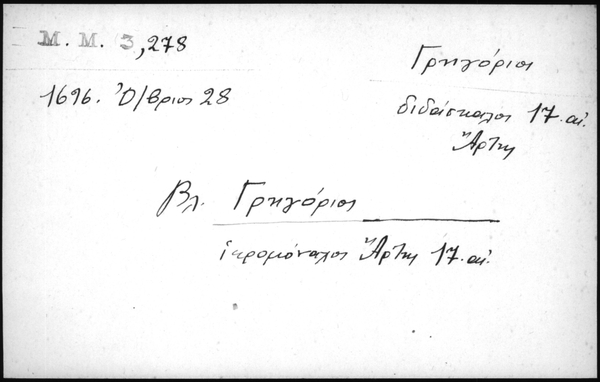 Μ. Μ. 3,278
Γρηγόριος
1696. Ὀ/βριος 28
διδάσκαλος 17. αἰ.
Ἄρτης
Βλ. Γρηγόριος
ἱερομόναχος Ἄρτης 17. αἰ.